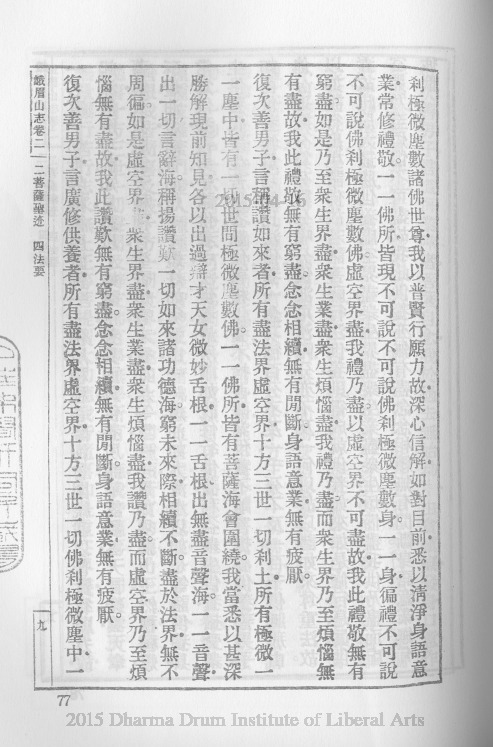 剎極微塵數諸佛世尊。我以普賢行願力故。深心信解。如對目前。悉以清淨身語意
業。常修禮敬。一一佛所。皆現不可說不可說佛剎極微塵數身。一一身徧禮不可說
不可說佛剎極微塵數佛。虛空界盡。我禮乃盡。以虛空界不可盡故。我此禮敬無有
窮盡。如是乃至眾生界盡。眾生業盡。眾生煩惱盡。我禮乃盡。而眾生界乃至煩惱無
有盡故。我此禮敬無有窮盡。念念相續。無有間斷。身語意業。無有疲厭。
復次善男子。言稱讚如來者。所有盡法界虛空界。十方三世一切剎土。所有極微一
一塵中。皆有一切世間極微塵數佛。一一佛所。皆有菩薩海會圍繞。我當悉以甚深
勝解。現前知見。各以出過辯才天女微妙舌根。一一舌根。出無盡音聲海。一一音聲。
出一切言辭海。稱揚讚歎一切如來諸功德海。窮未來際。相續不斷。盡於法界。無不
周徧。如是虛空界盡。眾生界盡。眾生業盡。眾生煩惱盡。我讚乃盡。而虛空界乃至煩
惱無有盡故。我此讚歎無有窮盡。念念相續。無有間斷。身語意業。無有疲厭。
復次善男子。言廣修供養者。所有盡法界虛空界。十方三世一切佛剎極微塵中。一
峨眉山志卷二 二菩薩聖迹 四法要
九
77
2015 Dharma Drum Institute of Liberal Arts